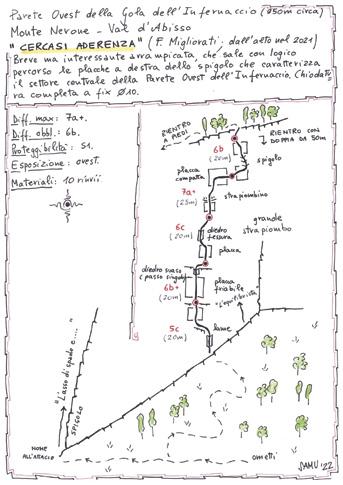 Parete Ovest della Gola dell'Infernaccio (850m circa)
Monte Nerone - Val d'Abisso
"CERCASI ADERENZA" (F. Migliorati dall'alto nel 2021)
Breve ma interessante arrampicata che sale con logico
percorso le placche a destra dello spigolo che caratterizza
il settore centrale della Parete Ovest dell'Infernaccio. Chiodatu
ra completa a fix Ø10.
Diff. max: 7a+.
Diff. obbl.: 6b.
Proteggibilità: S1.
Esposizione: ovest.
Materiali: 10 rinvii
RIENTRO
A PIEDI
RIENTRO CON
DOPPIA DA 50m
6b
(20m)
spigolo
placca
compatta
7a+
(25m)
strapiombino
6c
(20m)
diedro
fessura
grande
strapiombo
placca
diedro svaso
(passo singolo)
6b+
(20m)
placca
friabile
"L'equilibrista"
5c
(20m)
lame
"Lasso di spade e...."
SPIGOLO
NOME
ALL'ATTACCO
ometti
SAMU '22